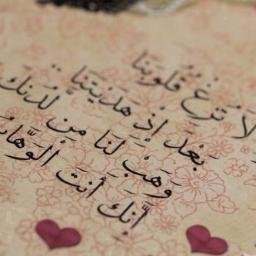 لَا تُزِغْ قُلُوبَنَا
بَعْدَ إِذْ هَدَيْتَنَا
وَهَبْ لَنَا مِنْ لَدُنكَ
إِنَّكَ أَنتَ الْوَهَّابُ